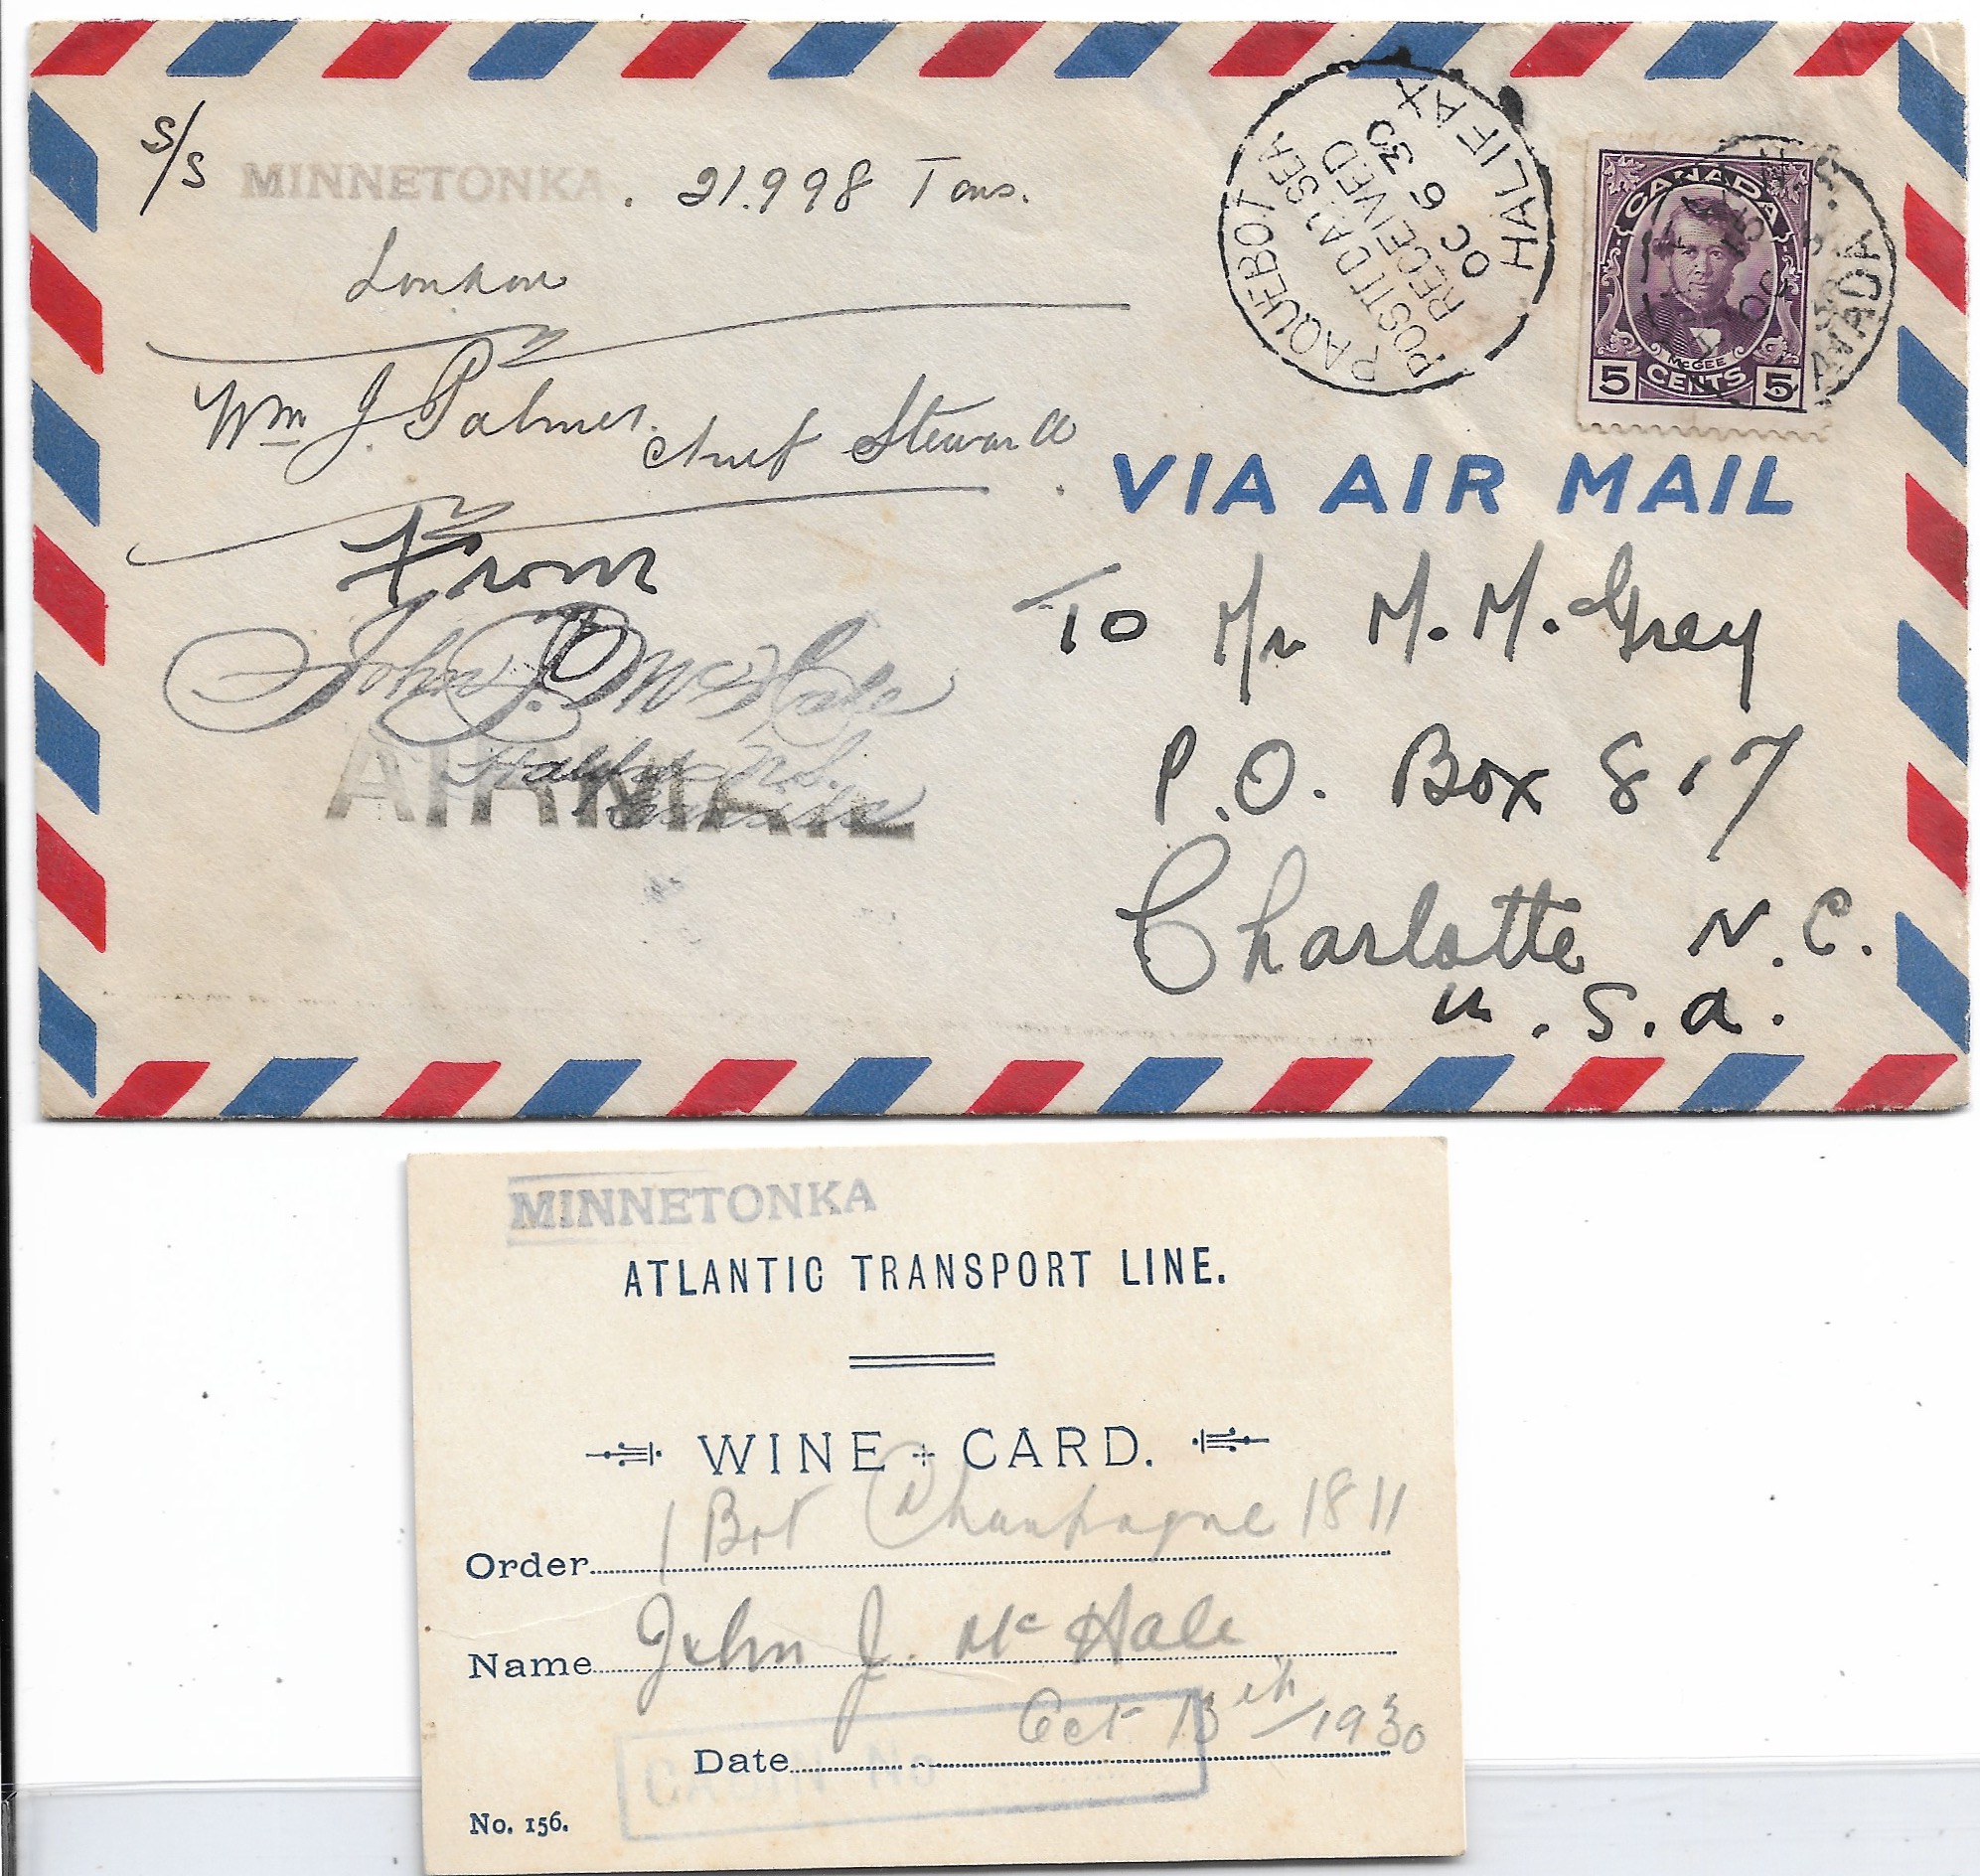 s/s MINNETONKA . 21.998 Tons.
London
Wm J. Palmer. Chief Steward
From
John J. McHale
Halifax N.S.
Canada
AIRMAIL
PAQUEBOT
POSTED AT SEA
RECEIVED
OC 6 30
HALIFAX
CANADA
McGEE
5 CENTS 5
CANADA
VIA AIR MAIL
To Mr M. M. Grey
P.O. Box 817
Charlotte N.C.
U.S.A.
MINNETONKA
ATLANTIC TRANSPORT LINE.
WINE + CARD.
Order 1 Bot Champagne 1811
Name John J. McHale
Date Oct 13th/1930
CABIN No
No. 156.